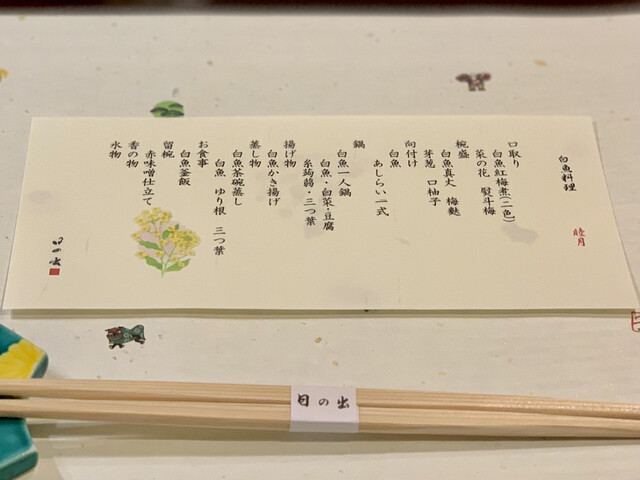 白魚料理
睦月
口取り
白魚紅梅煮(二色)
菜の花 熨斗梅
椀盛
白魚真丈 梅麩
芽葱 口柚子
向付け
白魚
あしらい一式
鍋
白魚一人鍋
白魚・白菜・豆腐
糸蒟蒻・三つ葉
揚げ物
白魚かき揚げ
蒸し物
白魚茶碗蒸し
白魚 ゆり根 三つ葉
お食事
白魚釜飯
留椀
赤味噌仕立て
香の物
水物
日の出
日の出